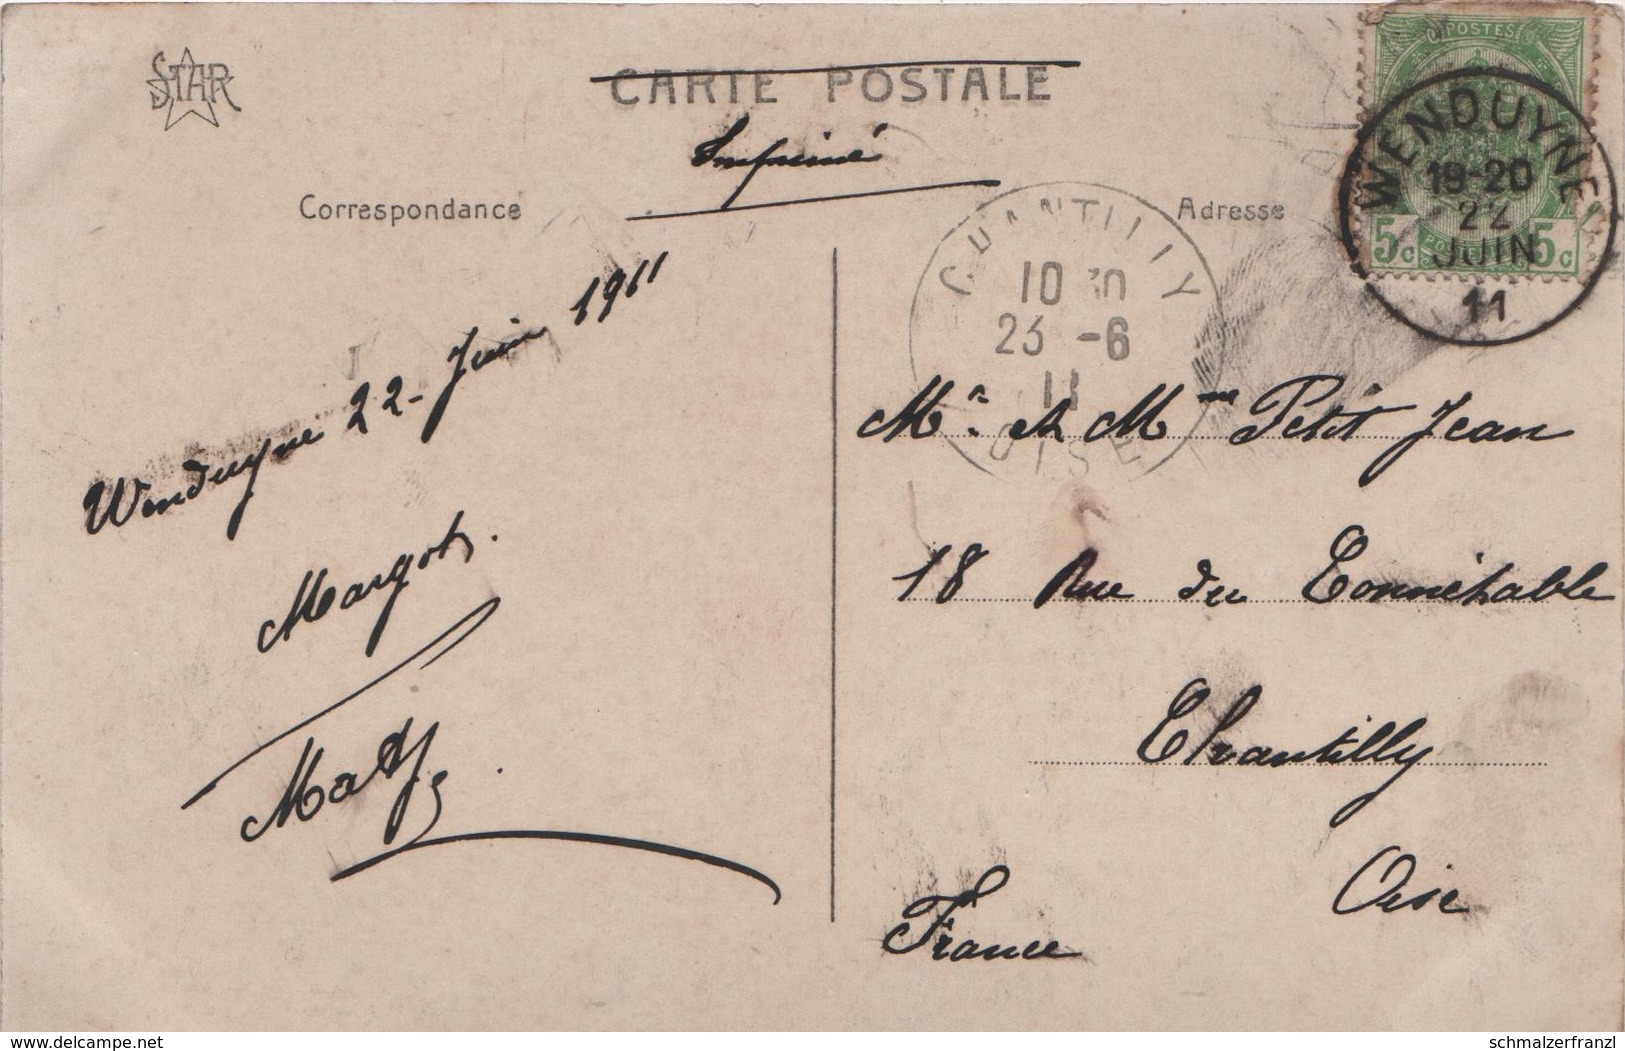 STAR
CARTE POSTALE
Imprimé
Correspondance
Adresse
POSTES
5c 5c
WENDUYNE
19-20
22
JUIN
11
CHANTILLY
10 30
23 -6
11
OISE
Wenduyne 22 - Juin 1911
Margot.
Mr. et Mme Petit Jean
18 Rue du Connétable
Chantilly
Oise
France
www.delcampe.net
schmalzerfranzl